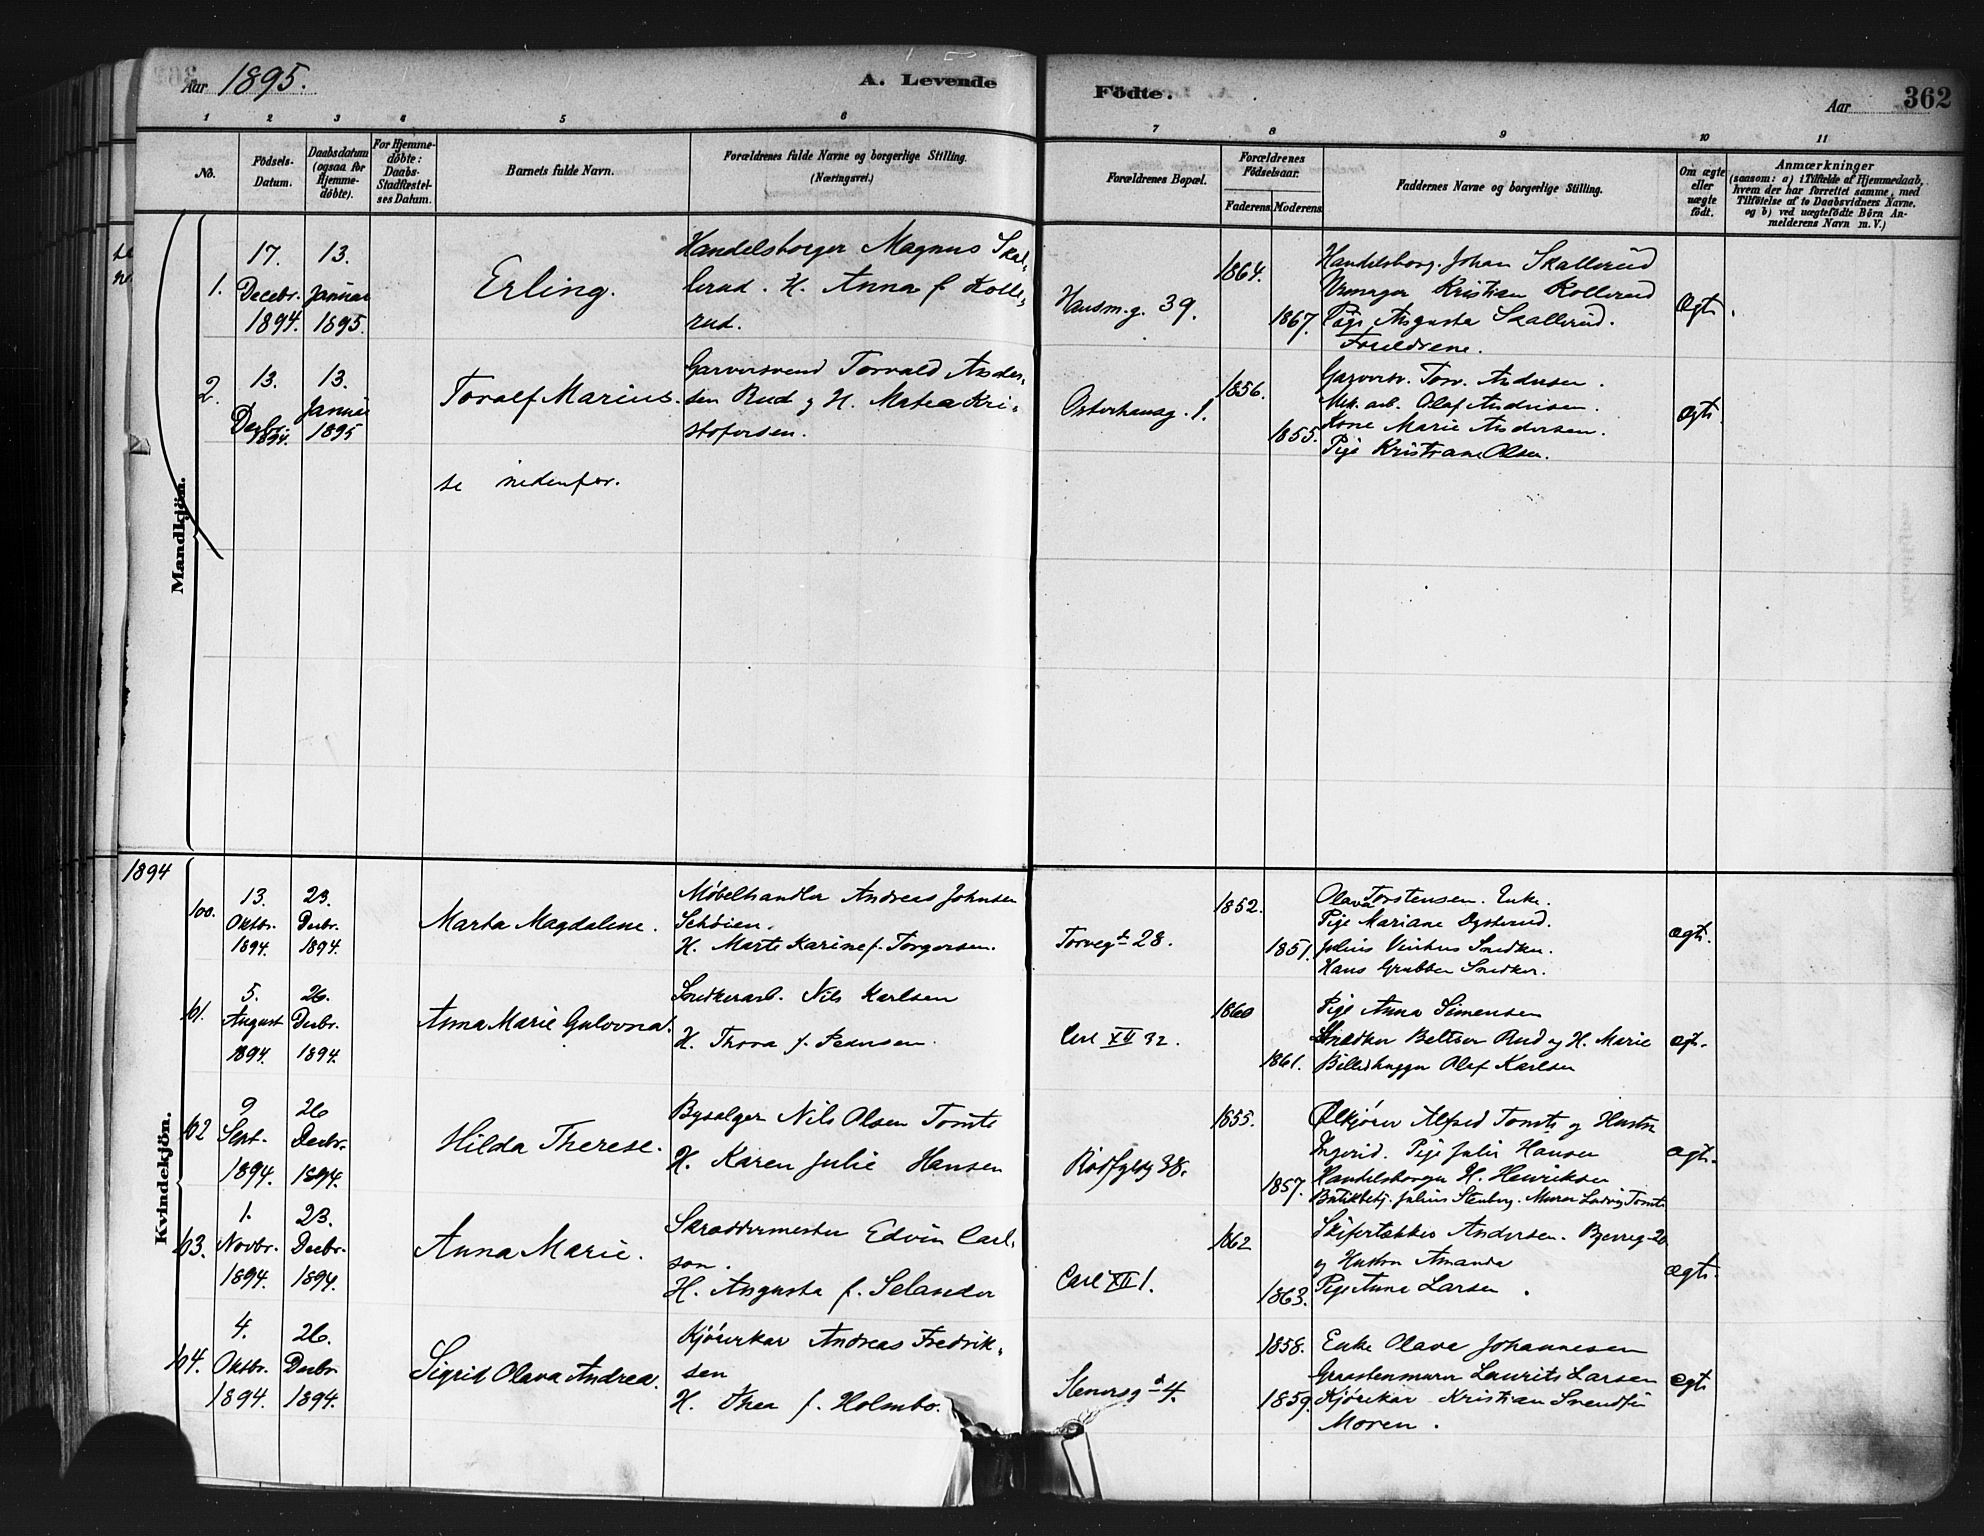 Aar 1895.
A. Levende
Födte.
Aar
362
1 2 3 4 5 6 7 8 9 10 11
No.
Födsels-
Datum.
Daabsdatum
(ogsaa for
Hjemme-
döbte).
For Hjemme-
döbte:
Daabs-
Stadfæstel-
ses Datum.
Barnets fulde Navn.
Forældrenes fulde Navne og borgerlige Stilling.
(Næringsvei.)
Forældrenes Bopæl.
Forældrenes
Födselsaar.
Faderens. Moderens.
Faddernes Navne og borgerlige Stilling.
Om ægte
eller
uægte
födt.
Anmærkninger
(saasom: a) i Tilfælde af Hjemmedaab,
hvem der har forrettet samme, med
Tilföielse af to Daabsvidners Navne.
og b) ved uægtefödte Börn An-
melderens Navn m. V.)
Mandkjön.
1.
17.
Decebr.
1894.
13.
Januar
1895.
Erling.
Handelsborger Magnus Skal-
lerud. H. Anna f. Rolle-
rud.
Hausm.g. 39.
1864.
1867.
Handelsborg. Johan Skallerud
Urmager Kristian Rollerud
Pige Augusta Skallerud.
Forældrene.
Ægt.
2.
13.
Decbr.
1894.
13.
Januar
1895
Toralf Marius.
Garversvend Torvald Ander-
sen Rud og H. Matea Kri-
stofersen.
Osterhausg. 1.
1856.
1855.
Garversv. Torv. Andersen.
Mek. arb. Olaf Andersen.
Kone Marie Andersen.
Pige Kristiane Olsen.
Ægt.
se nedenfor.
1894
Kvindekjön.
60.
13.
Oktbr.
1894.
23.
Decbr.
1894.
Marta Magdalene.
Møbelhandler Andreas Johnsen
Schøien.
H. Marte Karine f. Torgersen.
Torvegt 28.
1852.
1851.
Olava Torstensen. Enke.
Pige Mariane
Julius Snedker.
Hans Snedker.
Ægt.
61.
5.
August
1894.
26.
Decbr.
1894.
Anna Marie Gulovna.
Snedkerarb. Nils Karlsen
H. Thora f. Pedersen.
Carl XII 32.
1860
1861.
Pige Anna Simensen
Snedker Rud og H. Marie
Billedhugger Olaf Karlsen
Ægt.
62
9
Sept.
1894.
26
Decbr.
1894.
Hilda Therese.
Bysælger Nils Olsen Tomte
H. Karen Julie Hansen
Rødfyldg 38.
1855.
1857.
Ølkjører Alfred Tomte og Hustru
Ingerid. Pige Julie Hansen
Handelsborger H. Henriksen
Butikbetj. Julius Stenberg. Murer Ludvig Tomte
Ægt.
63.
1.
Novbr.
1894.
23.
Decbr.
1894.
Anna Marie.
Skræddermester Edvin Carl-
son.
H. Augusta f. Selander
Carl XII 1.
1862
1863.
Skifertækker Andersen.
og Hustru Amanda
Pige Anne Larsen.
Ægt.
64.
4.
Oktbr.
1894.
26.
Decbr.
1894.
Sigrid Olava Andrea.
Kjørerkar Andreas Fredrik-
sen
H. Thea f. Holmbo.
Stenersg 4.
1858.
1859.
Enke Olave Johannesen
Graastensmurer Laurits Larsen
Kjørekar Kristian
Moren.
Ægt.